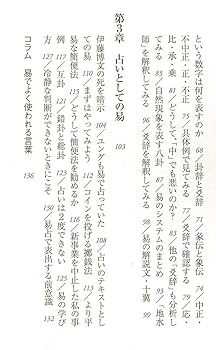 という数は何を表すのか 68／卦辞と爻辞 71／象伝と彖伝 74／中正・
不中正、正・不正 75／具体例で見てみる 77／爻辞で確認する 79／応・
比・承・乗 81／どうして、「中」でも悪いのか？ 83／他の「爻辞」も分析し
てみる 85／自然現象を表す八卦 87／易のシステムのまとめ 93／「地水
師」を解釈してみる 95／爻辞を解釈してみる 98／易の解説文・十翼 99
第3章 占いとしての易 103
伊藤博文の死を暗示 104／ユングも易で占っていた 108／占いのテキストとし
ての易 110／まずはやってみよう 112／コインを投げる擲銭法 113／より平
易な簡便法 115／どうして簡便法を勧めるか 116／新事業を中止した私の事
例 117／互卦 121／錯卦と綜卦 123／占いは2度できない 125／易の学び
方 127／冷静な判断ができないときにこそ 130／易占で表出する前意識 132
コラム 易でよく使われる言葉 136